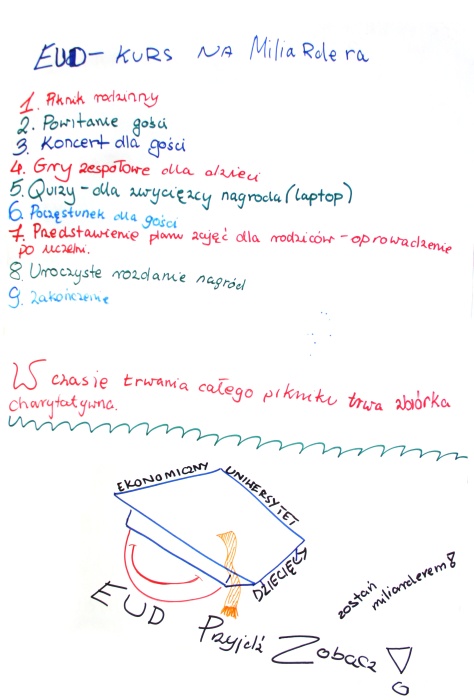 EUD - KURS NA MiliaRdera
1. Piknik rodzinny
2. Powitanie gości
3. Koncert dla gości
4. Gry zespołowe dla dzieci
5. Quizy - dla zwycięzcy nagroda (laptop)
6. Poczęstunek dla gości
7. Przedstawienie planu zajęć dla rodziców - oprowadzenie
po uczelni.
8. Uroczyste rozdanie nagród
9. Zakończenie
W czasie trwania całego pikniku trwa zbiórka
charytatywna.
EKONOMICZNY
UNIWERSYTET
DZIECIĘCY
EUD
zostań
miliarderem!
Przyjdź Zobacz!